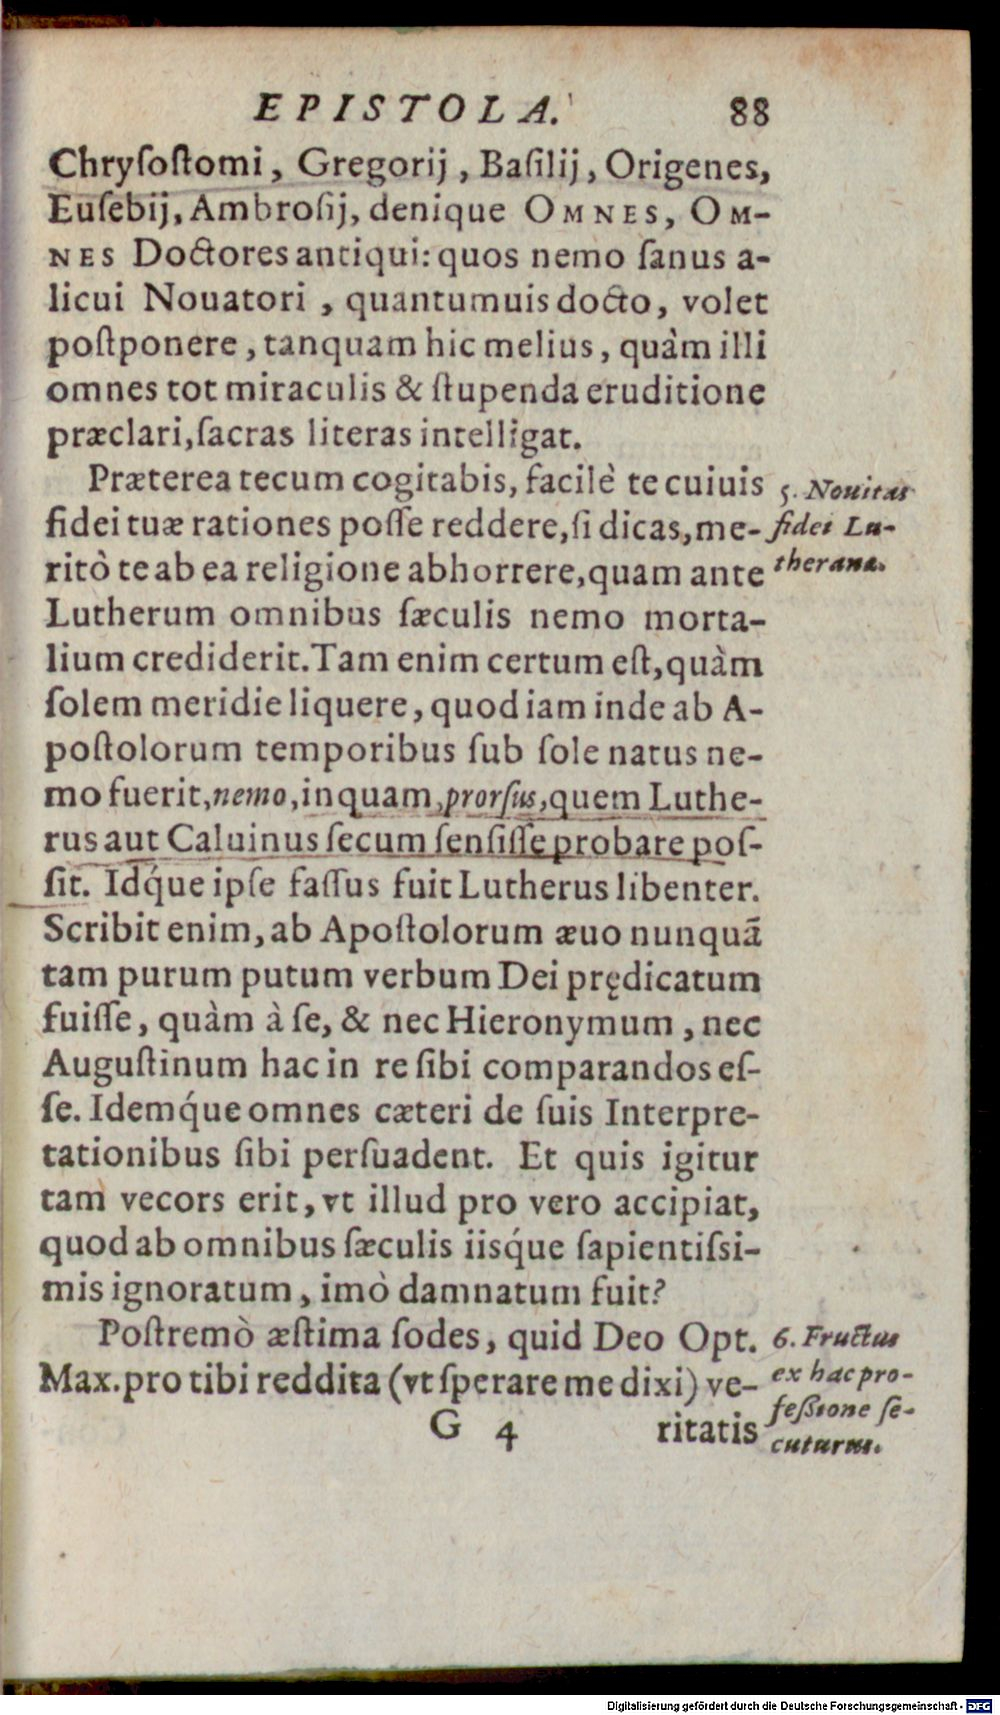 EPISTOLA. 88
Chryſoſtomi, Gregorij, Baſilij, Origenes,
Euſebij, Ambroſij, denique OMNES, OM-
NES Doctores antiqui: quos nemo ſanus a-
licui Nouatori, quantumuis docto, volet
poſtponere, tanquam hic melius, quàm illi
omnes tot miraculis & ſtupenda eruditione
præclari, ſacras literas intelligat.
Præterea tecum cogitabis, facilè te cuiuis
fidei tuæ rationes poſſe reddere, ſi dicas, me-
ritò te ab ea religione abhorrere, quam ante
Lutherum omnibus ſæculis nemo morta-
lium crediderit. Tam enim certum eſt, quàm
ſolem meridie liquere, quod iam inde ab A-
poſtolorum temporibus ſub ſole natus ne-
mo fuerit, nemo, inquam, prorſus, quem Luthe-
rus aut Caluinus ſecum ſenſiſſe probare poſ-
ſit. Idq́ue ipſe faſſus fuit Lutherus libenter.
Scribit enim, ab Apoſtolorum æuo nunquã
tam purum putum verbum Dei prędicatum
fuiſſe, quàm à ſe, & nec Hieronymum, nec
Auguſtinum hac in re ſibi comparandos eſ-
ſe. Idemq́ue omnes cæteri de ſuis Interpre-
tationibus ſibi perſuadent. Et quis igitur
tam vecors erit, vt illud pro vero accipiat,
quod ab omnibus ſæculis iiſq́ue ſapientiſſi-
mis ignoratum, imò damnatum fuit?
Poſtremò æſtima ſodes, quid Deo Opt.
Max. pro tibi reddita (vt ſperare me dixi) ve-
G 4 ritatis
5. Nouitas
fidei Lu-
therana.
6. Fructus
ex hac pro-
feſsione ſe-
cuturus.
Digitalisierung gefördert durch die Deutsche Forschungsgemeinschaft - DFG